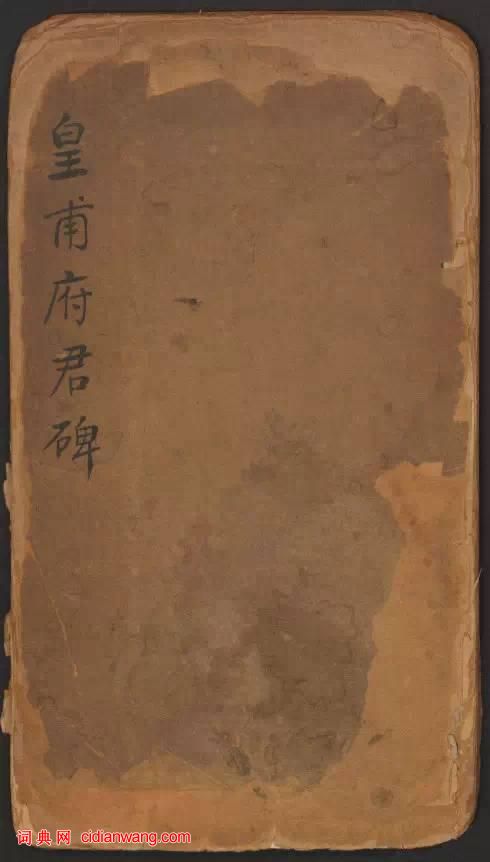 皇甫府君碑
词典网 cidianwang.com